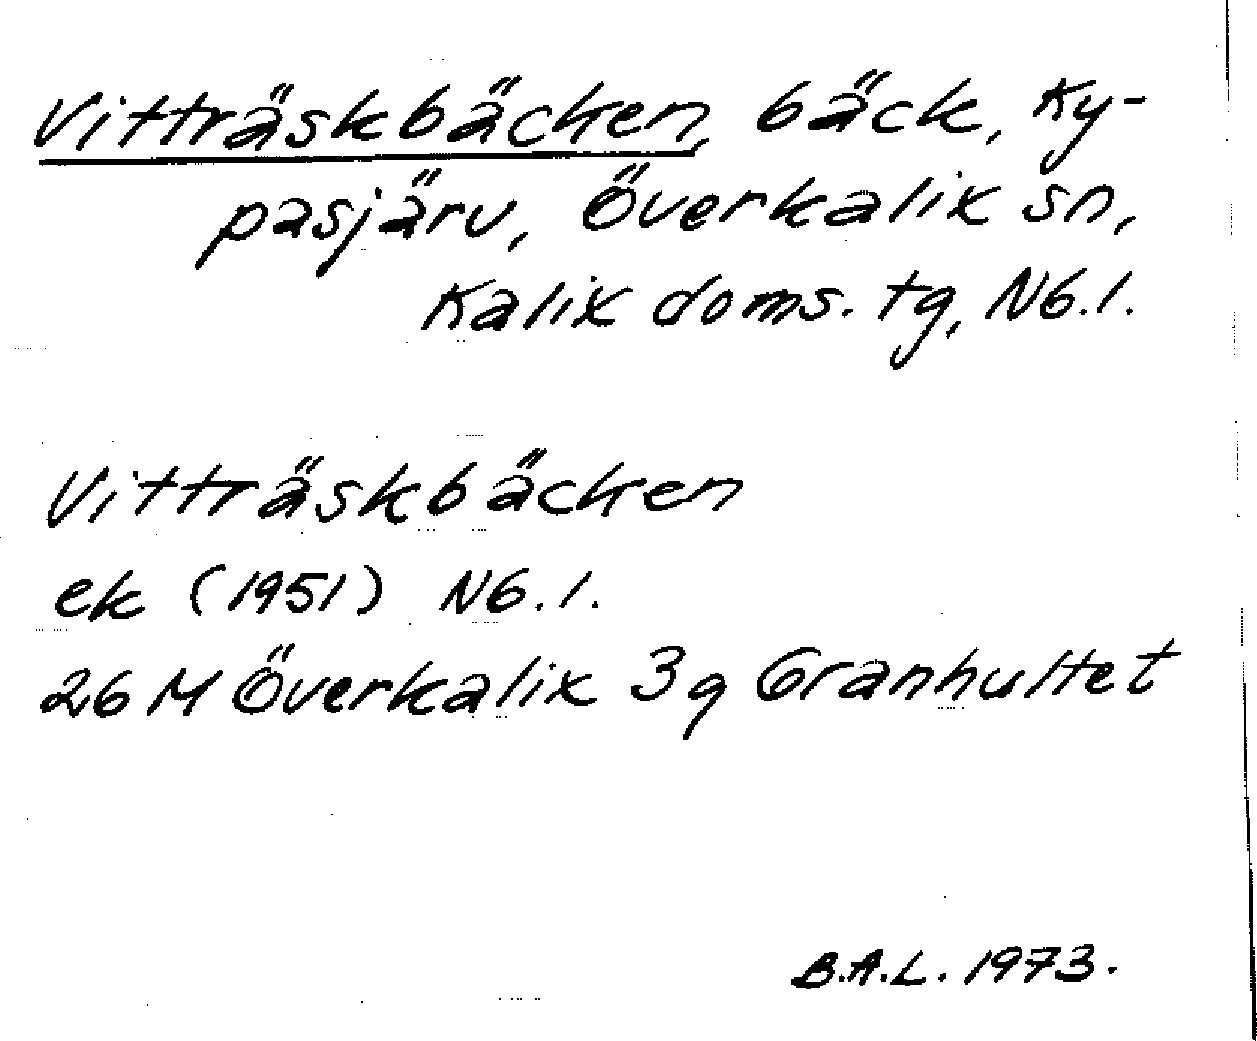 Vitträskbäcken, bäck, Ky-
pasjärv, Överkalix sn,
Kalix doms. tg, Nb.l.
Vitträskbäcken
ek (1951) Nb.l.
26 M Överkalix 3g Granhultet
B.A.L. 1973.